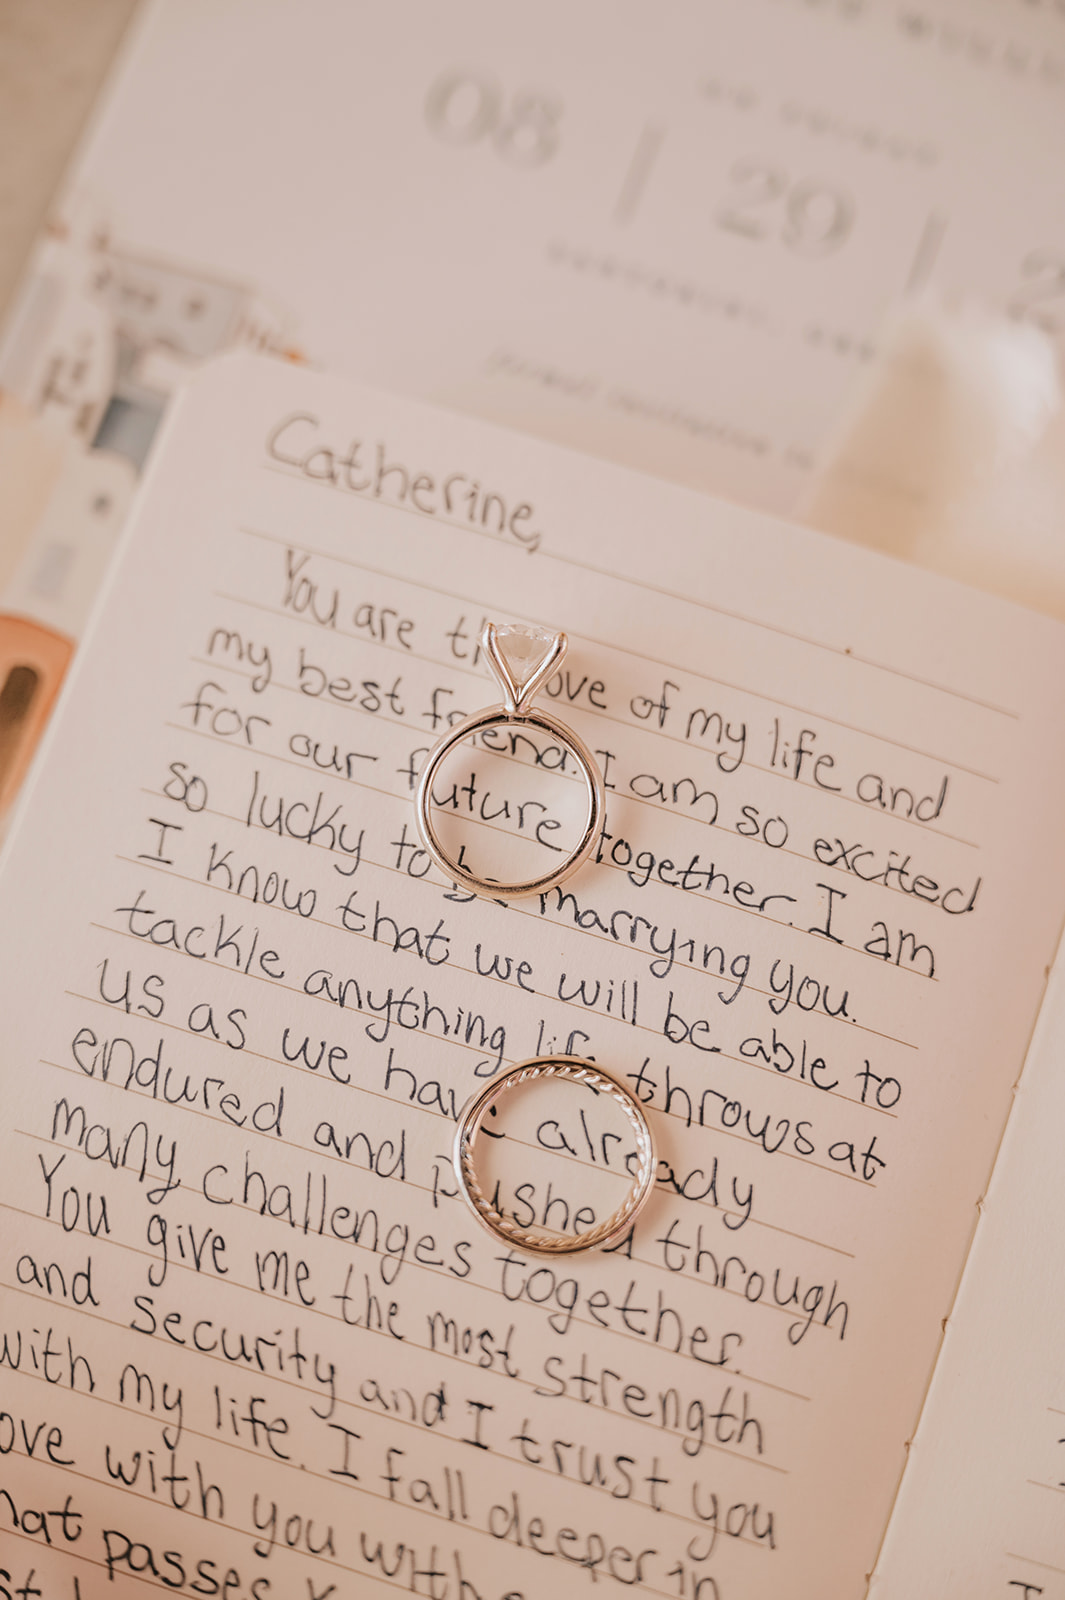 08 | 29 |
Catherine,
You are the love of my life and
my best friend. I am so excited
for our future together. I am
so lucky to be marrying you.
I know that we will be able to
tackle anything life throws at
us as we have already
endured and pushed through
many challenges together.
You give me the most strength
and security and I trust you
with my life. I fall deeper in
love with you with
that passes